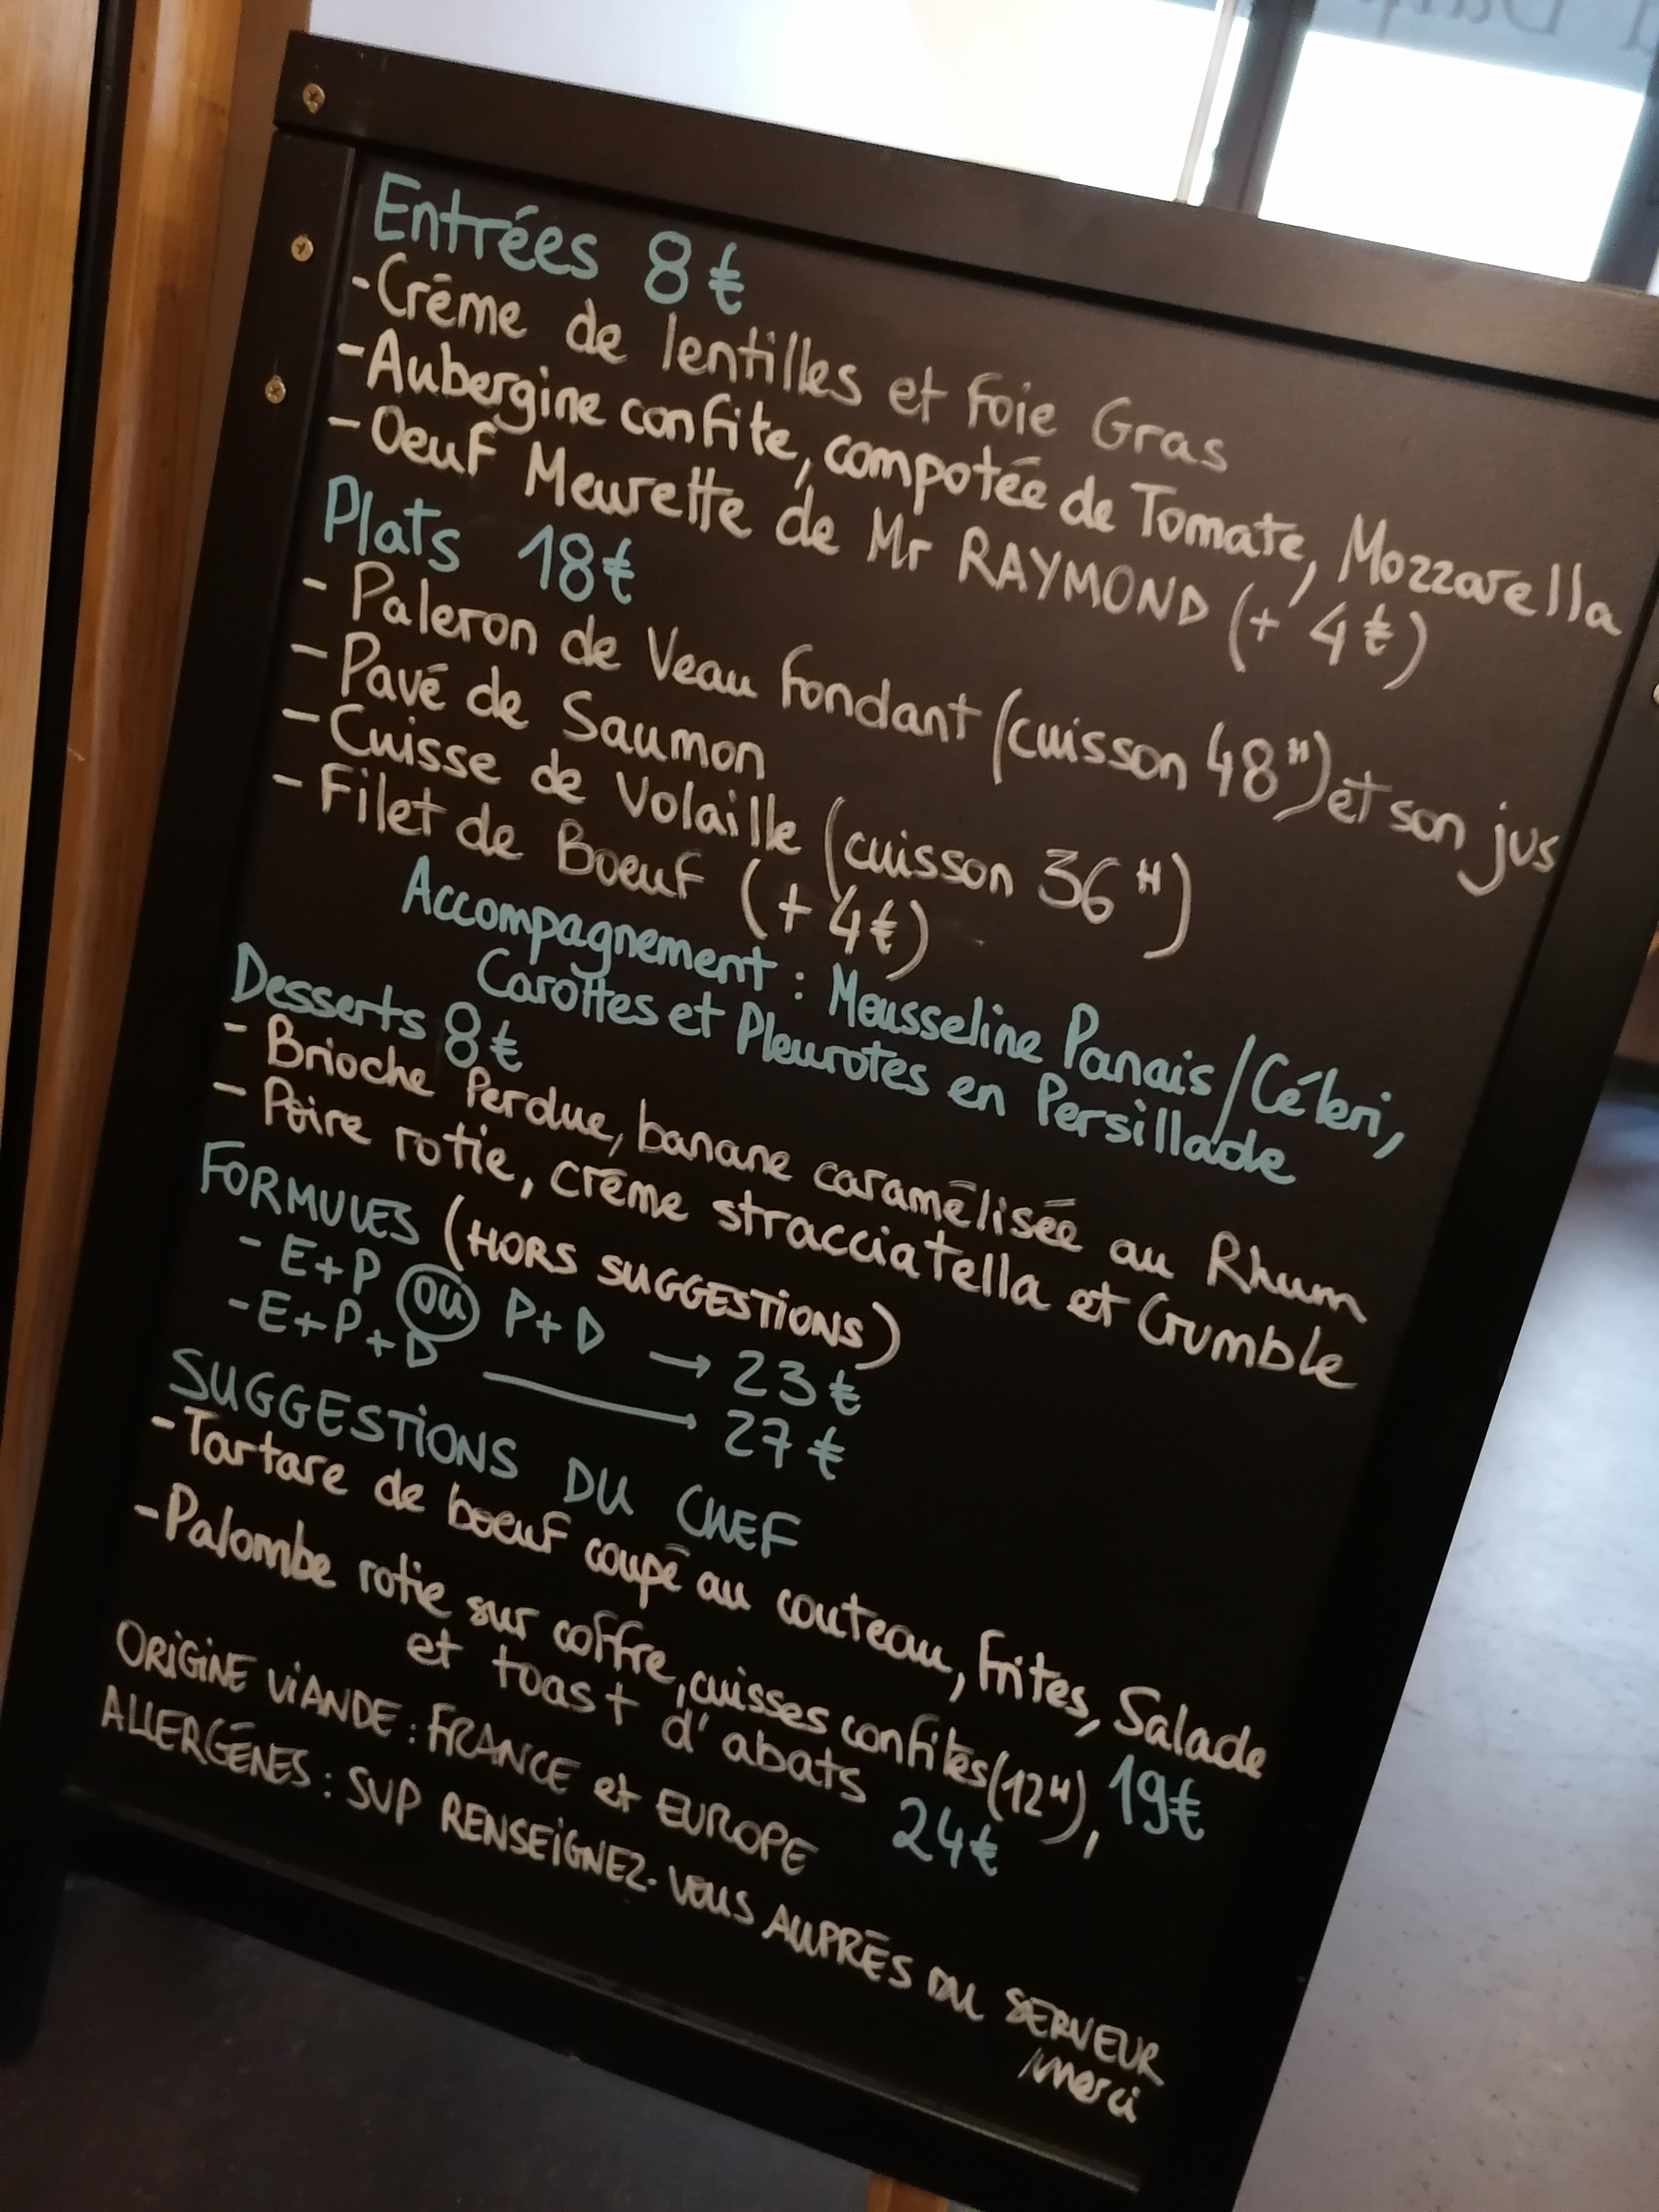 Entrées 8€
-Crème de lentilles et Foie Gras
-Aubergine confite, compotée de Tomate, Mozzarella
-Oeuf Meurette de Mr RAYMOND (+ 4€)
Plats 18€
- Paleron de Veau fondant (cuisson 48H) et son jus
- Pavé de Saumon
- Cuisse de Volaille (cuisson 36H)
- Filet de Boeuf (+ 4€)
Accompagnement : Mousseline Panais/Céleri,
Carottes et Pleurotes en Persillade
Desserts 8€
- Brioche Perdue, banane caramélisée au Rhum
- Poire rotie, crème stracciatella et Crumble
FORMULES (HORS SUGGESTIONS)
- E+P OU P+D → 23€
-E+P+D → 27€
SUGGESTIONS DU CHEF
-Tartare de boeuf coupé au couteau, Frites, Salade 19€
-Palombe rotie sur coffre, cuisses confites(12H),
et toast d'abats 24€
ORIGINE VIANDE : FRANCE et EUROPE
ALLERGÈNES : SVP RENSEIGNEZ-VOUS AUPRÈS DU SERVEUR
Merci